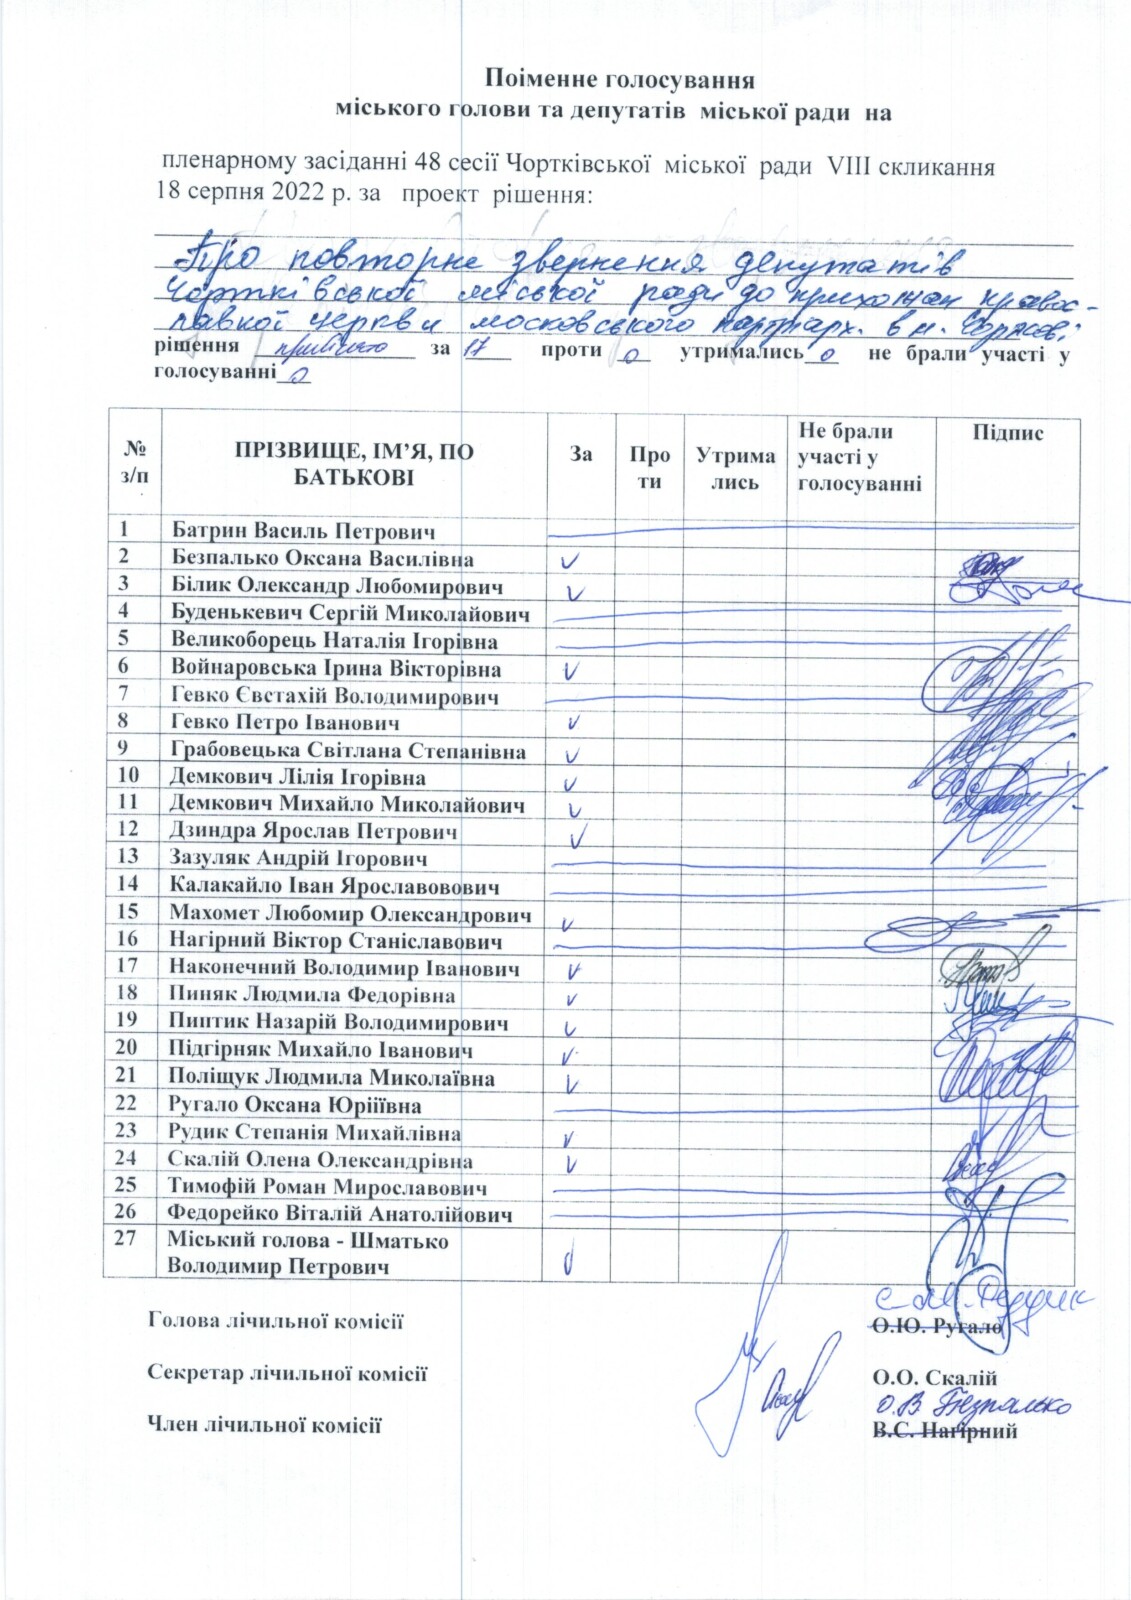 Поіменне голосування
міського голови та депутатів міської ради на
пленарному засіданні 48 сесії Чортківської міської ради VIII скликання
18 серпня 2022 р. за проект рішення:
Про повторне звернення депутатів
Чортківської міської ради до прихожан правос-
лавної церкви московського патріарх. в м. Чорткові
рішення прийнято за 17 проти 0 утримались 0 не брали участі у
голосуванні 0
№ з/п ПРІЗВИЩЕ, ІМ’Я, ПО БАТЬКОВІ За Про ти Утрима лись Не брали участі у голосуванні Підпис
1 Батрин Василь Петрович
2 Безпалько Оксана Василівна
3 Білик Олександр Любомирович
4 Буденькевич Сергій Миколайович
5 Великоборець Наталія Ігорівна
6 Войнаровська Ірина Вікторівна
7 Гевко Євстахій Володимирович
8 Гевко Петро Іванович
9 Грабовецька Світлана Степанівна
10 Демкович Лілія Ігорівна
11 Демкович Михайло Миколайович
12 Дзиндра Ярослав Петрович
13 Зазуляк Андрій Ігорович
14 Калакайло Іван Ярославовович
15 Махомет Любомир Олександрович
16 Нагірний Віктор Станіславович
17 Наконечний Володимир Іванович
18 Пиняк Людмила Федорівна
19 Пиптик Назарій Володимирович
20 Підгірняк Михайло Іванович
21 Поліщук Людмила Миколаївна
22 Ругало Оксана Юрііївна
23 Рудик Степанія Михайлівна
24 Скалій Олена Олександрівна
25 Тимофій Роман Мирославович
26 Федорейко Віталій Анатолійович
27 Міський голова - Шматько
Володимир Петрович
С.М. Рудик
Голова лічильної комісії О.Ю. Ругало
Секретар лічильної комісії О.О. Скалій
О.В. Безпалько
Член лічильної комісії В.С. Нагірний